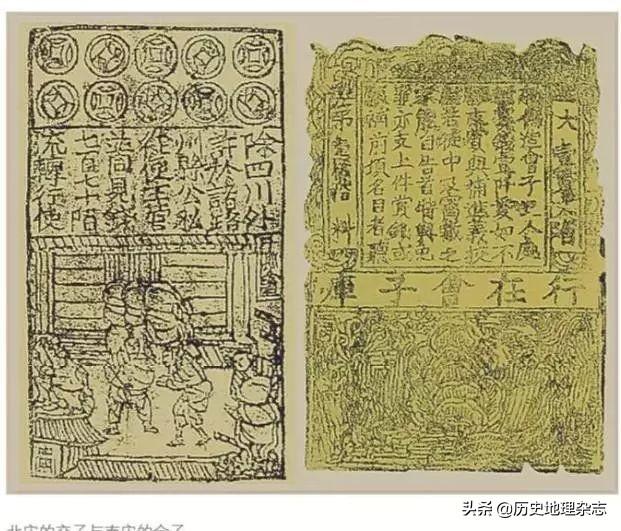 除四川外
許於諸路
州縣公私
從便主管
並同見錢
七百七十陌
流轉行使
大壹貫文省
敕偽造會子犯人處
斬賞錢壹阡貫如不
願受賞與補進義校
尉若徒中及窩藏之
家能自告首特與免
罪亦支上件賞錢或
願補前項名目者聽
第壹佰拾料
行在會子庫
头条 @历史地理杂志
北宋的交子与南宋的会子